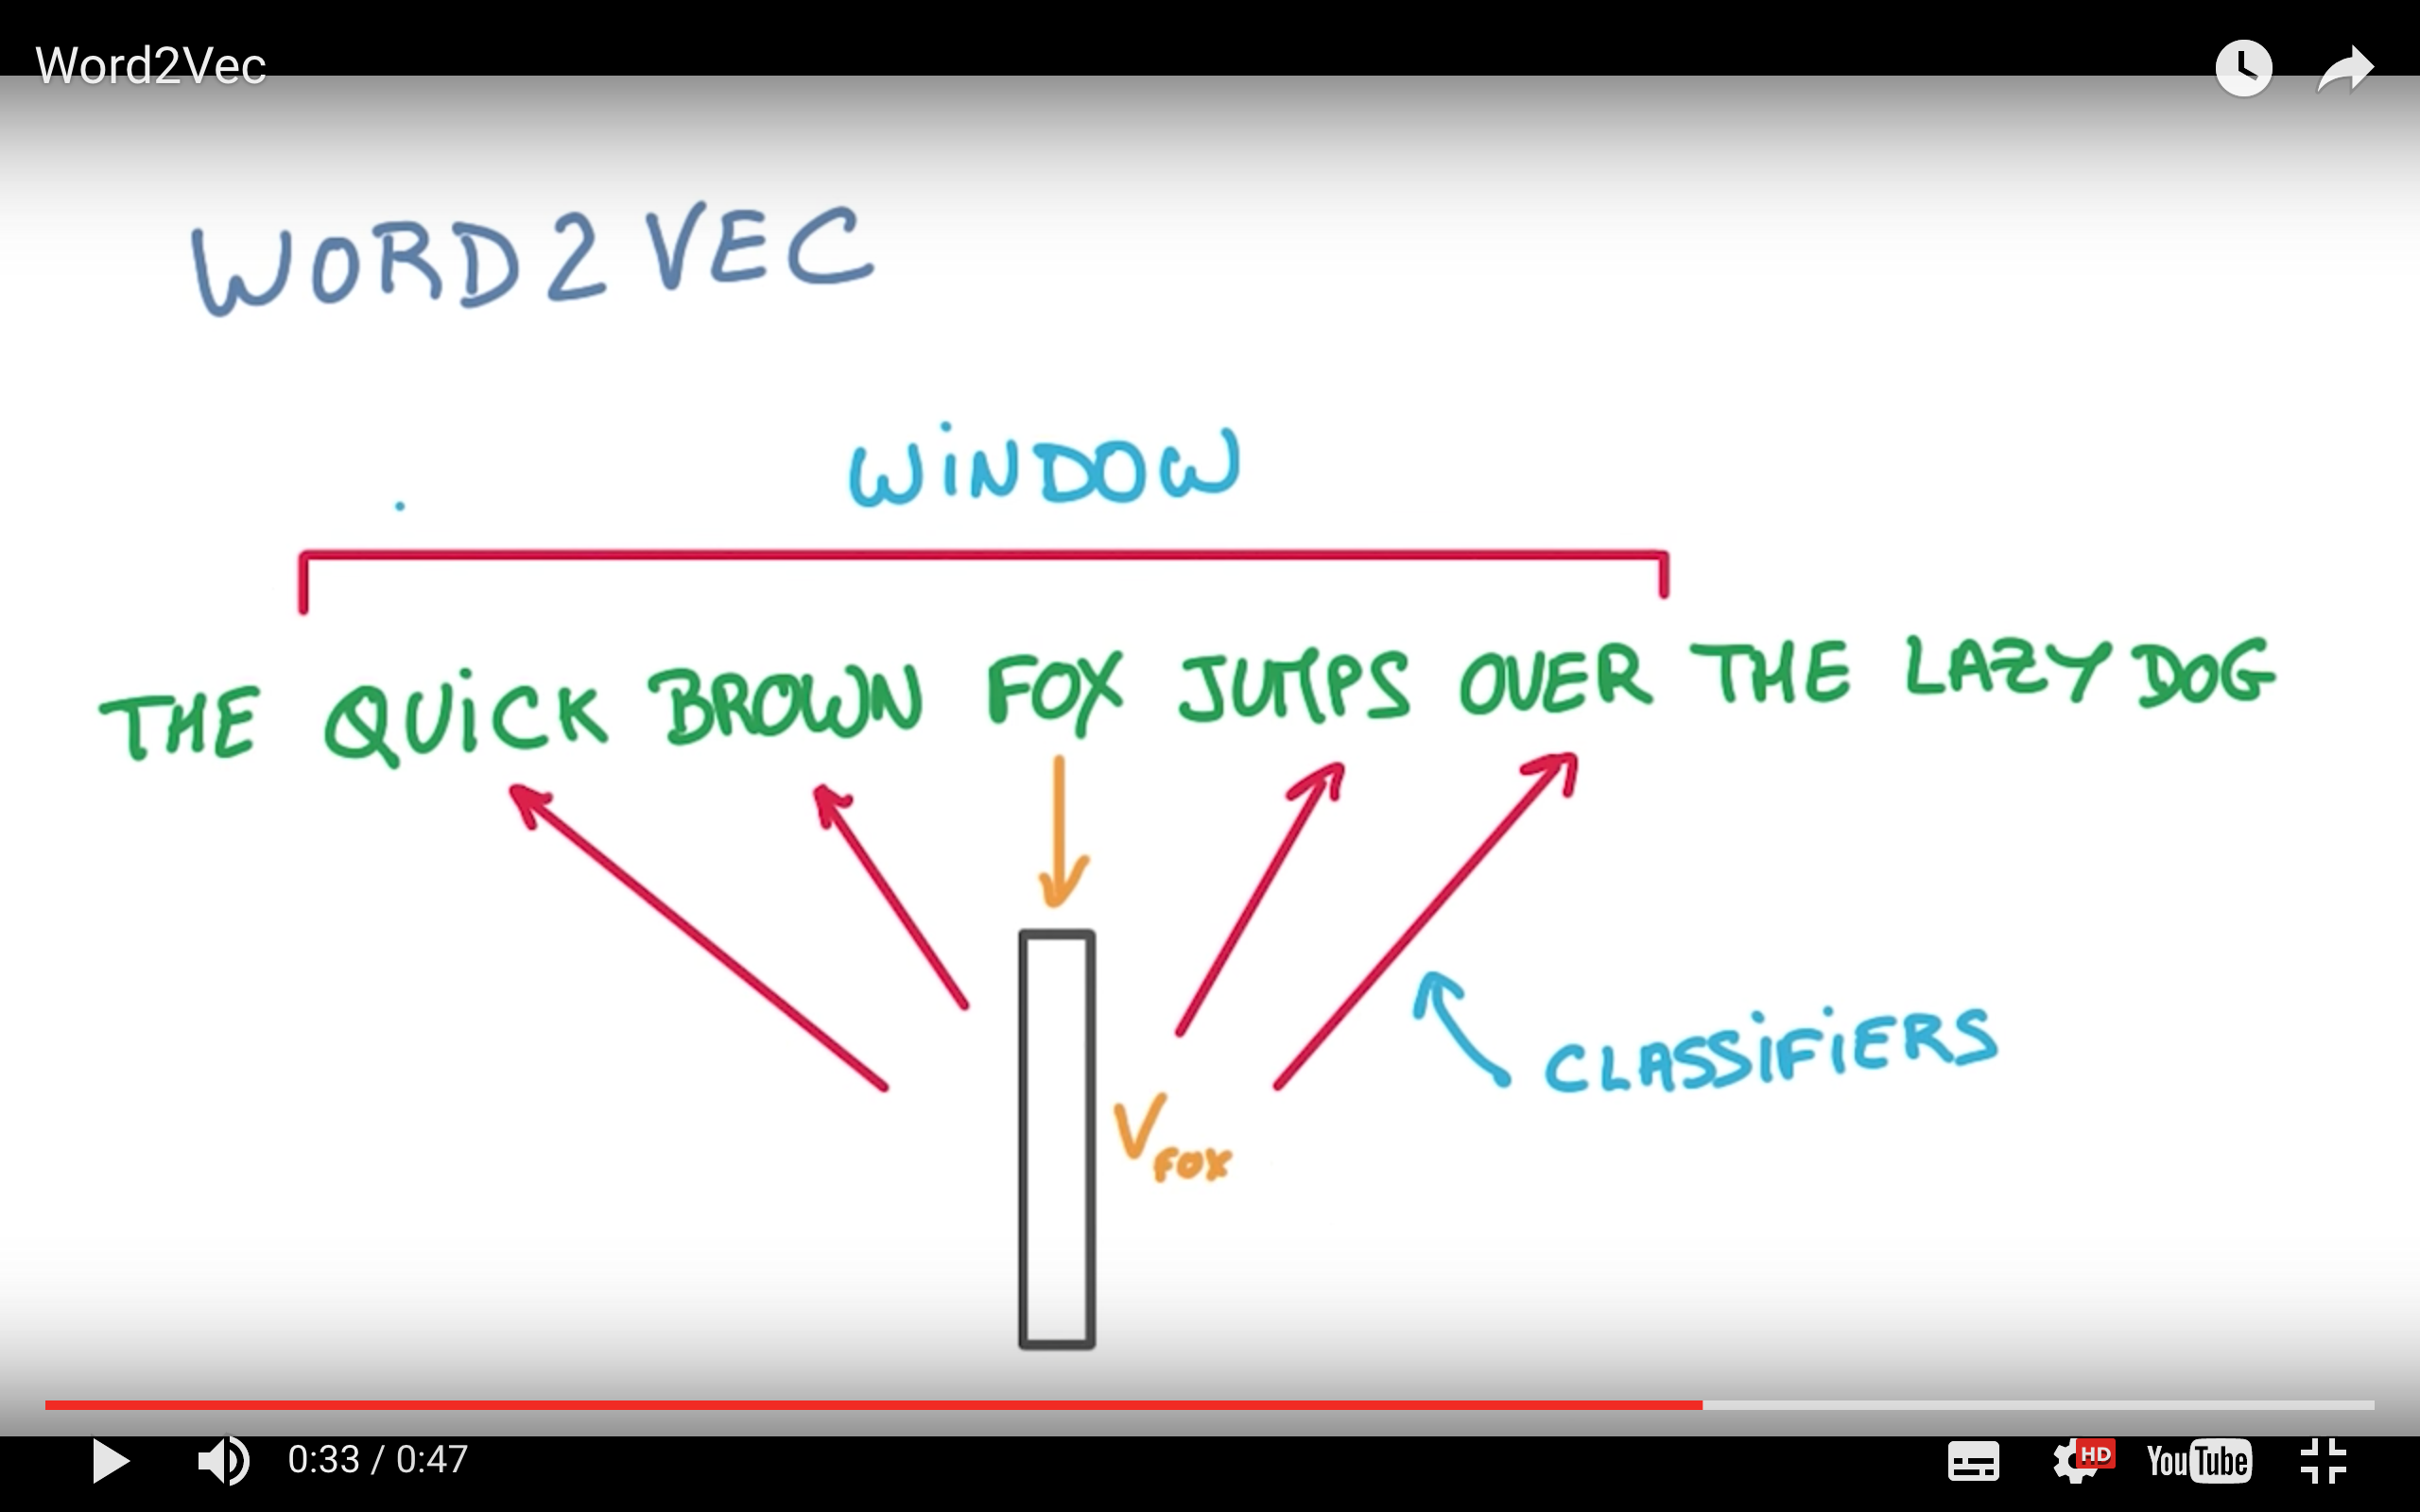 Word2Vec
WORD2VEC
WINDOW
THE QUICK BROWN FOX JUMPS OVER THE LAZY DOG
CLASSIFIERS
V FOX
0:33 / 0:47
HD
YouTube